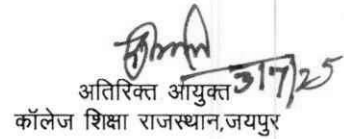 31/7/25
अतिरिक्त आयुक्त
कॉलेज शिक्षा राजस्थान,जयपुर